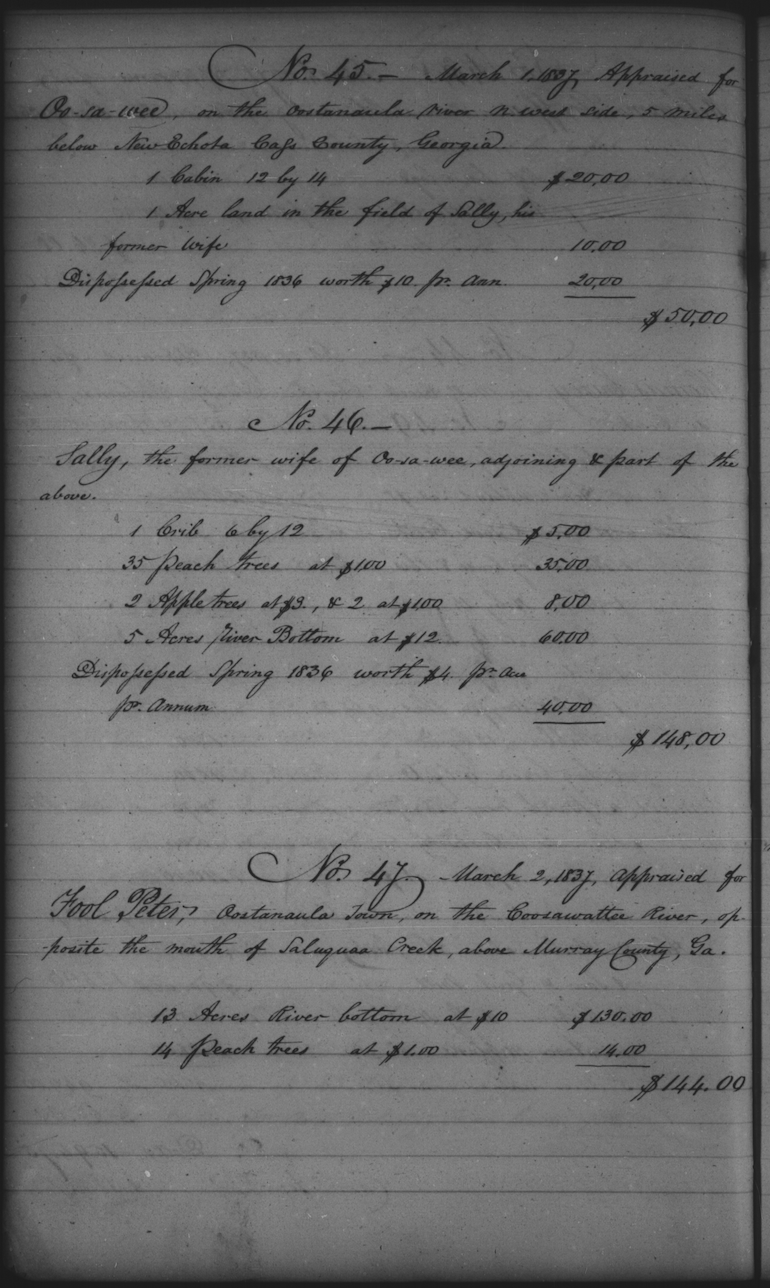 No. 45.– March 1, 1837, Appraised for
Oo-sa-wee, on the Oostanaula river n. west side, 5 miles
below New Echota Cass County, Georgia.
1 Cabin 12 by 14 $20.00
1 Acre land in the field of Sally, his
former wife 10.00
Dispossessed Spring 1836 worth $10 pr. Ann. 20.00
$50.00
No. 46.–
Sally, the former wife of Oo-sa-wee, adjoining & part of the
above.
1 Crib 6 by 12 $5.00
35 Peach trees at $1.00 35.00
2 Apple trees at $3., & 2 at $1.00 8.00
5 Acres River Bottom at $12 60.00
Dispossessed Spring 1836 worth $4 pr Ann
pr. Annum 40.00
$148.00
No. 47. March 2, 1837, Appraised for
Fool Peter, Oostanaula Town, on the Coosawattee River, op-
-posite the mouth of Saluquaa Creek, above Murray County, Ga.
13 Acres River bottom at $10 $130.00
14 Peach trees at $1.00 14.00
$144.00